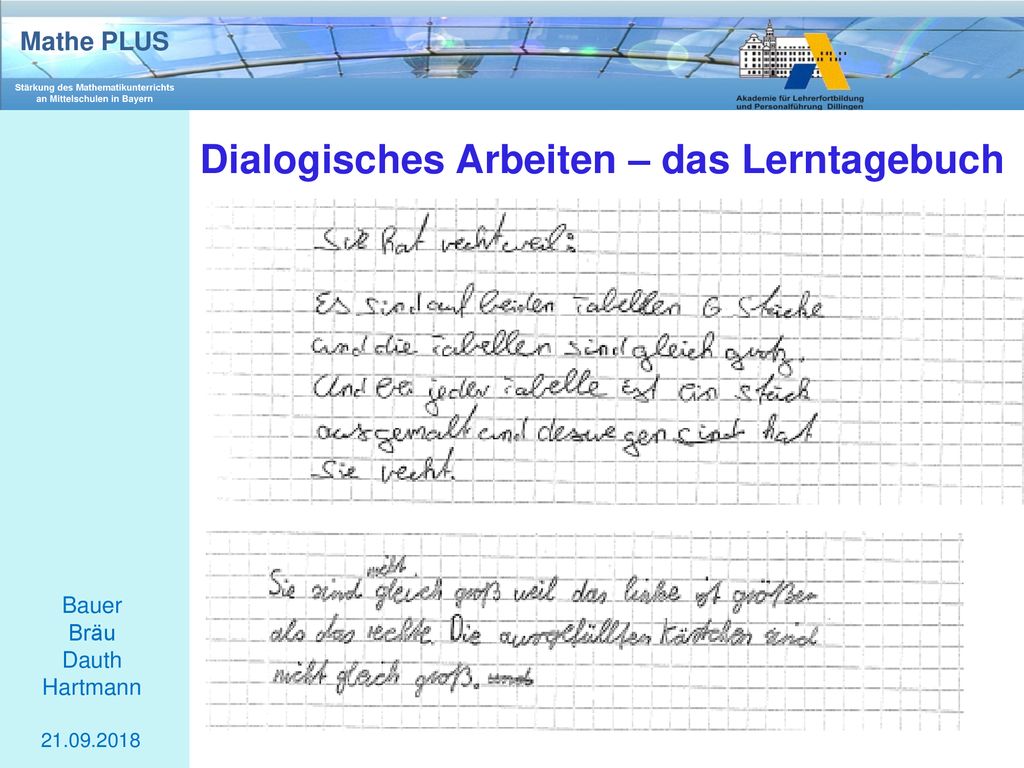 Mathe PLUS
Stärkung des Mathematikunterrichts
an Mittelschulen in Bayern
Akademie für Lehrerfortbildung
und Personalführung Dillingen
Dialogisches Arbeiten – das Lerntagebuch
Sie hat recht weil:
Es sind auf beiden Tabellen 6 Stücke
und die Tabellen sind gleich groß.
Und bei jeder Tabelle ist ein stück
ausgemalt und deswegen sind hat
Sie recht.
nicht
Sie sind gleich groß weil das linke ist größer
als das rechte. Die ausgefüllten Kästchen sind
nicht gleich groß. und
Bauer
Bräu
Dauth
Hartmann
21.09.2018